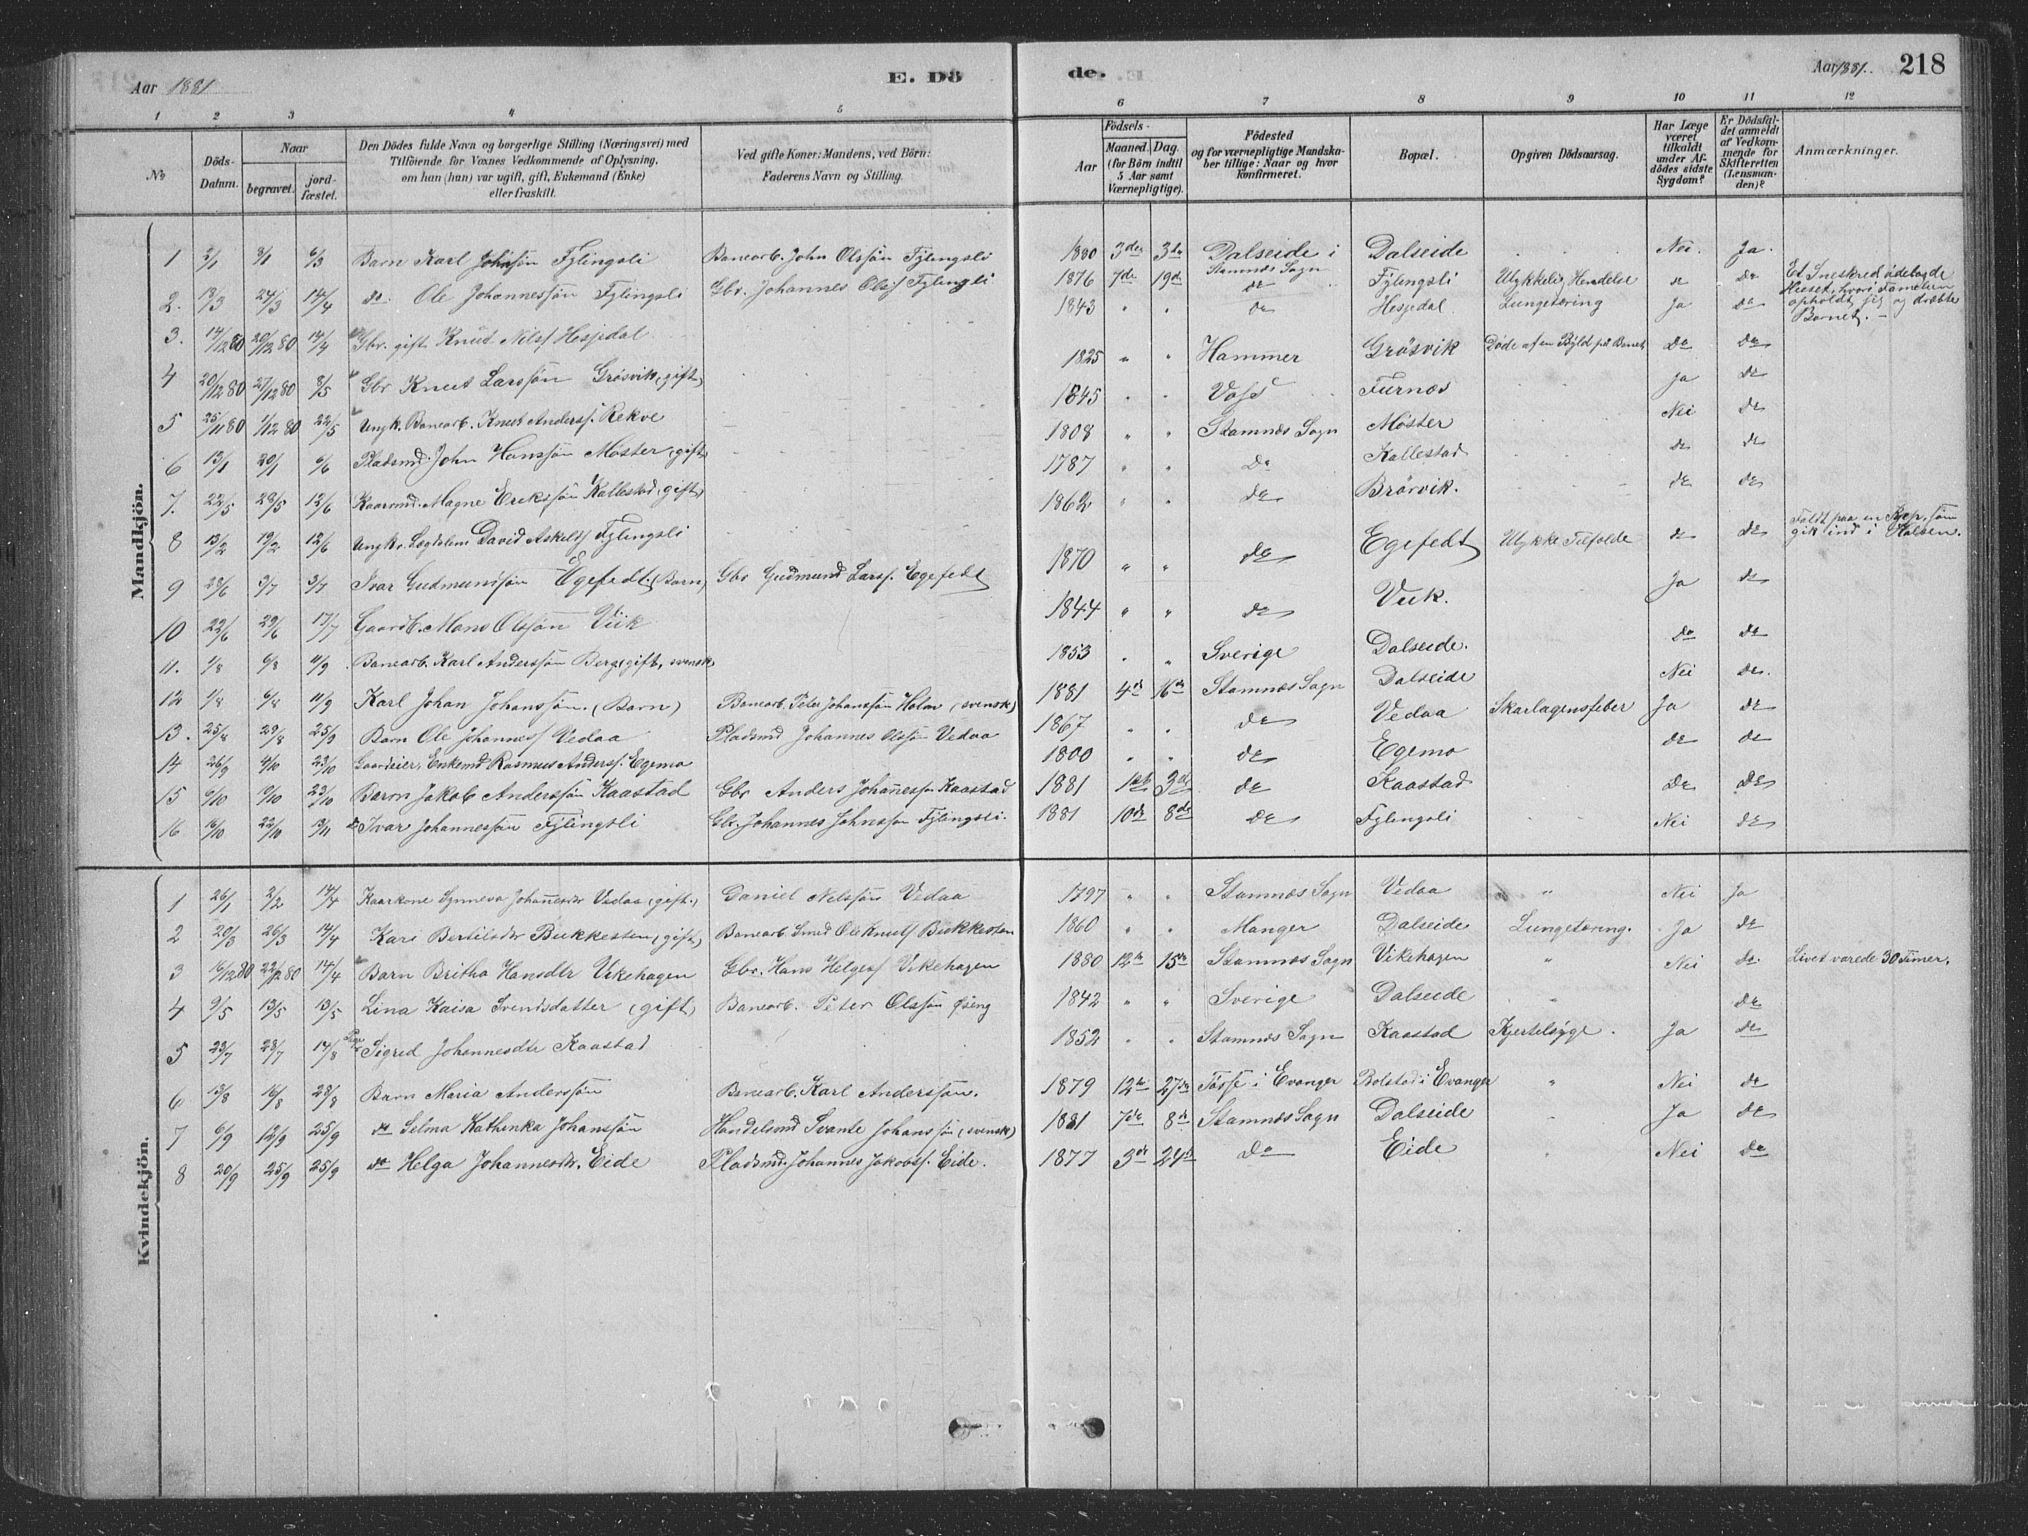 Aar 1881
E. Dö
de.
Aar 1881.
218
1 2 3 4 5 6 7 8 9 10 11 12
No
Döds-Datum.
Naar
begravet.
jordfæstet.
Den Dödes fulde Navn og borgerlige Stilling (Næringsvei) med
Tilföiende for Voxnes Vedkommende af Oplysning,
om han (hun) var ugift, gift, Enkemand (Enke)
eller fraskilt.
Ved gifte Koner: Mandens, ved Börn:
Faderens Navn og Stilling.
Aar
Födsels-
Maaned. Dag.
(for Börn indtil
5 Aar samt
Værnepligtige).
Födested
og for værnepligtige Mandska-
ber tillige: Naar og hvor
konfirmeret.
Bopæl.
Opgiven Dödsaarsag.
Har Læge
været
tilkaldt
under Af-
dödes sidste
Sygdom?
Er Dödsfal-
det anmeldt
af Vedkom-
mende for
Skifteretten
(Lensman-
den)?
Anmærkninger.
Mandkjön.
1 2/1 8/1 6/3 Barn Karl Johnsön Fylingsli Banearb. John Olssön Fylingsli 1880 3de 3de Dalseide i Stamnæs Sogn Dalseide Nei. Ja.
2. 18/3 24/3 14/4 do. Ole Johannessön Fylingsli Gbr. Johannes Olss Fylingsli 1876 7de 19de do Fylingsli Ulykkelig Hendelse do do Et Sneskred ödelagde Huset, hvori Familien opholdt sig og dræbte Barnet. -
3. 14/12 80 20/12 80 14/4 Gbr. gift Knut Nilss Hesjedal 1843 " " do Hesjedal Lungetæring Ja do
4 20/12 80 27/12 80 8/5 Gbr Knut Larssön Grösvik (gift) 1825 " " Hammer Grösvik Döde af en Byld på Benet do do
5 25/11 80 1/12 80 22/5 Ungk. Banearb. Knut Anderss. Rekve 1845 " " Voss Furnæs Ja do
6 13/1 20/1 6/6 Pladsmd. John Hanssön Moster (gift) 1808 " " Stamnæs Sogn Moster Nei do
7. 22/5 28/5 12/6 Kaarmd. Magne Erikssön Kallestad (gift) 1787 " " do Kallestad do do
8 13/2 19/2 12/6 Ungkr. Lægdslem David Askelds Fylingsli 1862 " " do Brörvik. do do
9 28/6 3/7 3/7 Ivar Gudmundssön Egefedt (Barn) Gbr Gudmund Larss. Egefedt 1870 " " do Egefedt Ulykke Tilfælde do do Faldt paa en som gik ind i Halsen.
10 22/6 29/6 17/7 Gaardb. Mons Olssön Viik 1844 " " do Viik. Ja do
11. 1/8 6/8 11/9 Banearb. Karl Anderssön Berg (gift, svensk) 1853 " " Sverige Dalseide. do do
12 1/8 6/8 11/9 Karl Johan Johanssön. (Barn) Banearb. Peter Johanssön Holm (svensk) 1881 4de 16de Stamnæs Sogn Dalseide Nei do.
13. 25/8 29/8 25/9 Barn Ole Johanness Vedaa Pladsmd Johannes Olssön Vedaa 1867 " " do Vedaa Skarlagensfeber Ja do
14 26/9 4/10 23/10 Gaardeier, Enkemd Rasmus Anderss. Egemo 1800 " " do Egemo do do
15 6/10 9/10 23/10 Barn Jakob Anderssön Kaastad Gbr Anders Johannessön Kaastad 1881 1ste 3de do Kaastad do do
16 16/10 22/10 13/11 do Ivar Johannessön Fylingsli Gbr. Johannes Johnssön Fylingsli. 1881 10de 8de do Fylingsli Nei do
Kvindekjön.
1 26/1 2/2 14/4 Kaarkone Synneva Johannesdr Vedaa (gift.) Daniel Nilssön Vedaa 1797 " " Stamnæs Sogn Vedaa " Nei Ja
2 20/3 26/3 14/4 Kari Bertilsdr Bukkesten (gift) Banearb. Smed Ole Knuts Bukkesten 1860 " " Manger Dalseide Lungetæring. Ja do
3 16/12 80 22/12 80 14/4 Barn Britha Hansdtr Vikehagen Gbr. Hans Helgess Vikehagen 1880 12te 15de Stamnæs Sogn Vikehagen " Nei do Livet varede 30 Timer.
4 9/5 13/5 13/5 Lina Kaisa Svendsdatter (gift) Banearb. Peter Olssön Öseng 1842 " " Sverige Dalseide " do
5 23/7 28/7 14/8 Pige Sigrid Johannesdtr Kaastad 1852 " " Stamnæs Sogn Kaastad Kjertelsyge. Ja do
6 13/8 16/8 28/8 Barn Maria Anderssön Banearb. Karl Anderssön. 1879 12te 27de Fosse i Evanger Bolstad i Evanger " Nei do
7 6/9 12/9 25/9 do Selma Kathinka Johanssön Handelsmd Svante Johanssön (svensk) 1881 7de 8de Stamnæs Sogn Dalseide Ja do
8 20/9 25/9 25/9 do Helga Johannesdr. Eide Pladsmd. Johannes Jakobss. Eide. 1877 3de 24de do Eide Nei do